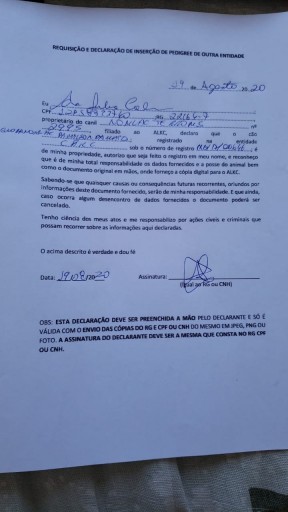 REQUISIÇÃO E DECLARAÇÃO DE INSERÇÃO DE PEDIGREE DE OUTRA ENTIDADE
19 de Agosto 20 20
Eu
CPF RG
proprietário do canil nº
filiado ao ALKC, declara que o cão
registrado na entidade
sob o número de registro é
de minha propriedade, autorizo que seja feito o registro em meu nome, e reconheço
que é de minha total responsabilidade os dados fornecidos e a posse do animal bem
como o documento original em mãos, onde forneço a cópia digital para o ALKC.
Sabendo-se que quaisquer causas ou consequências futuras recorrentes, oriundos por
informações deste documento fornecido, serão de minha responsabilidade. E que ainda,
caso ocorra algum desencontro de dados fornecidos o documento poderá ser
cancelado.
Tenho ciência dos meus atos e me responsabilizo por ações civeis e criminais que
possam recorrer sobre as informações aqui declaradas.
O acima descrito é verdade e dou fé
Data: 19/08/2020 Assinatura:
(igual ao RG ou CNH)
OBS: ESTA DECLARAÇÃO DEVE SER PREENCHIDA A MÃO PELO DECLARANTE E SÓ É
VÁLIDA COM O ENVIO DAS CÓPIAS DO RG E CPF OU CNH DO MESMO EM JPEG, PNG OU
FOTO. A ASSINATURA DO DECLARANTE DEVE SER A MESMA QUE CONSTA NO RG CPF
OU CNH.